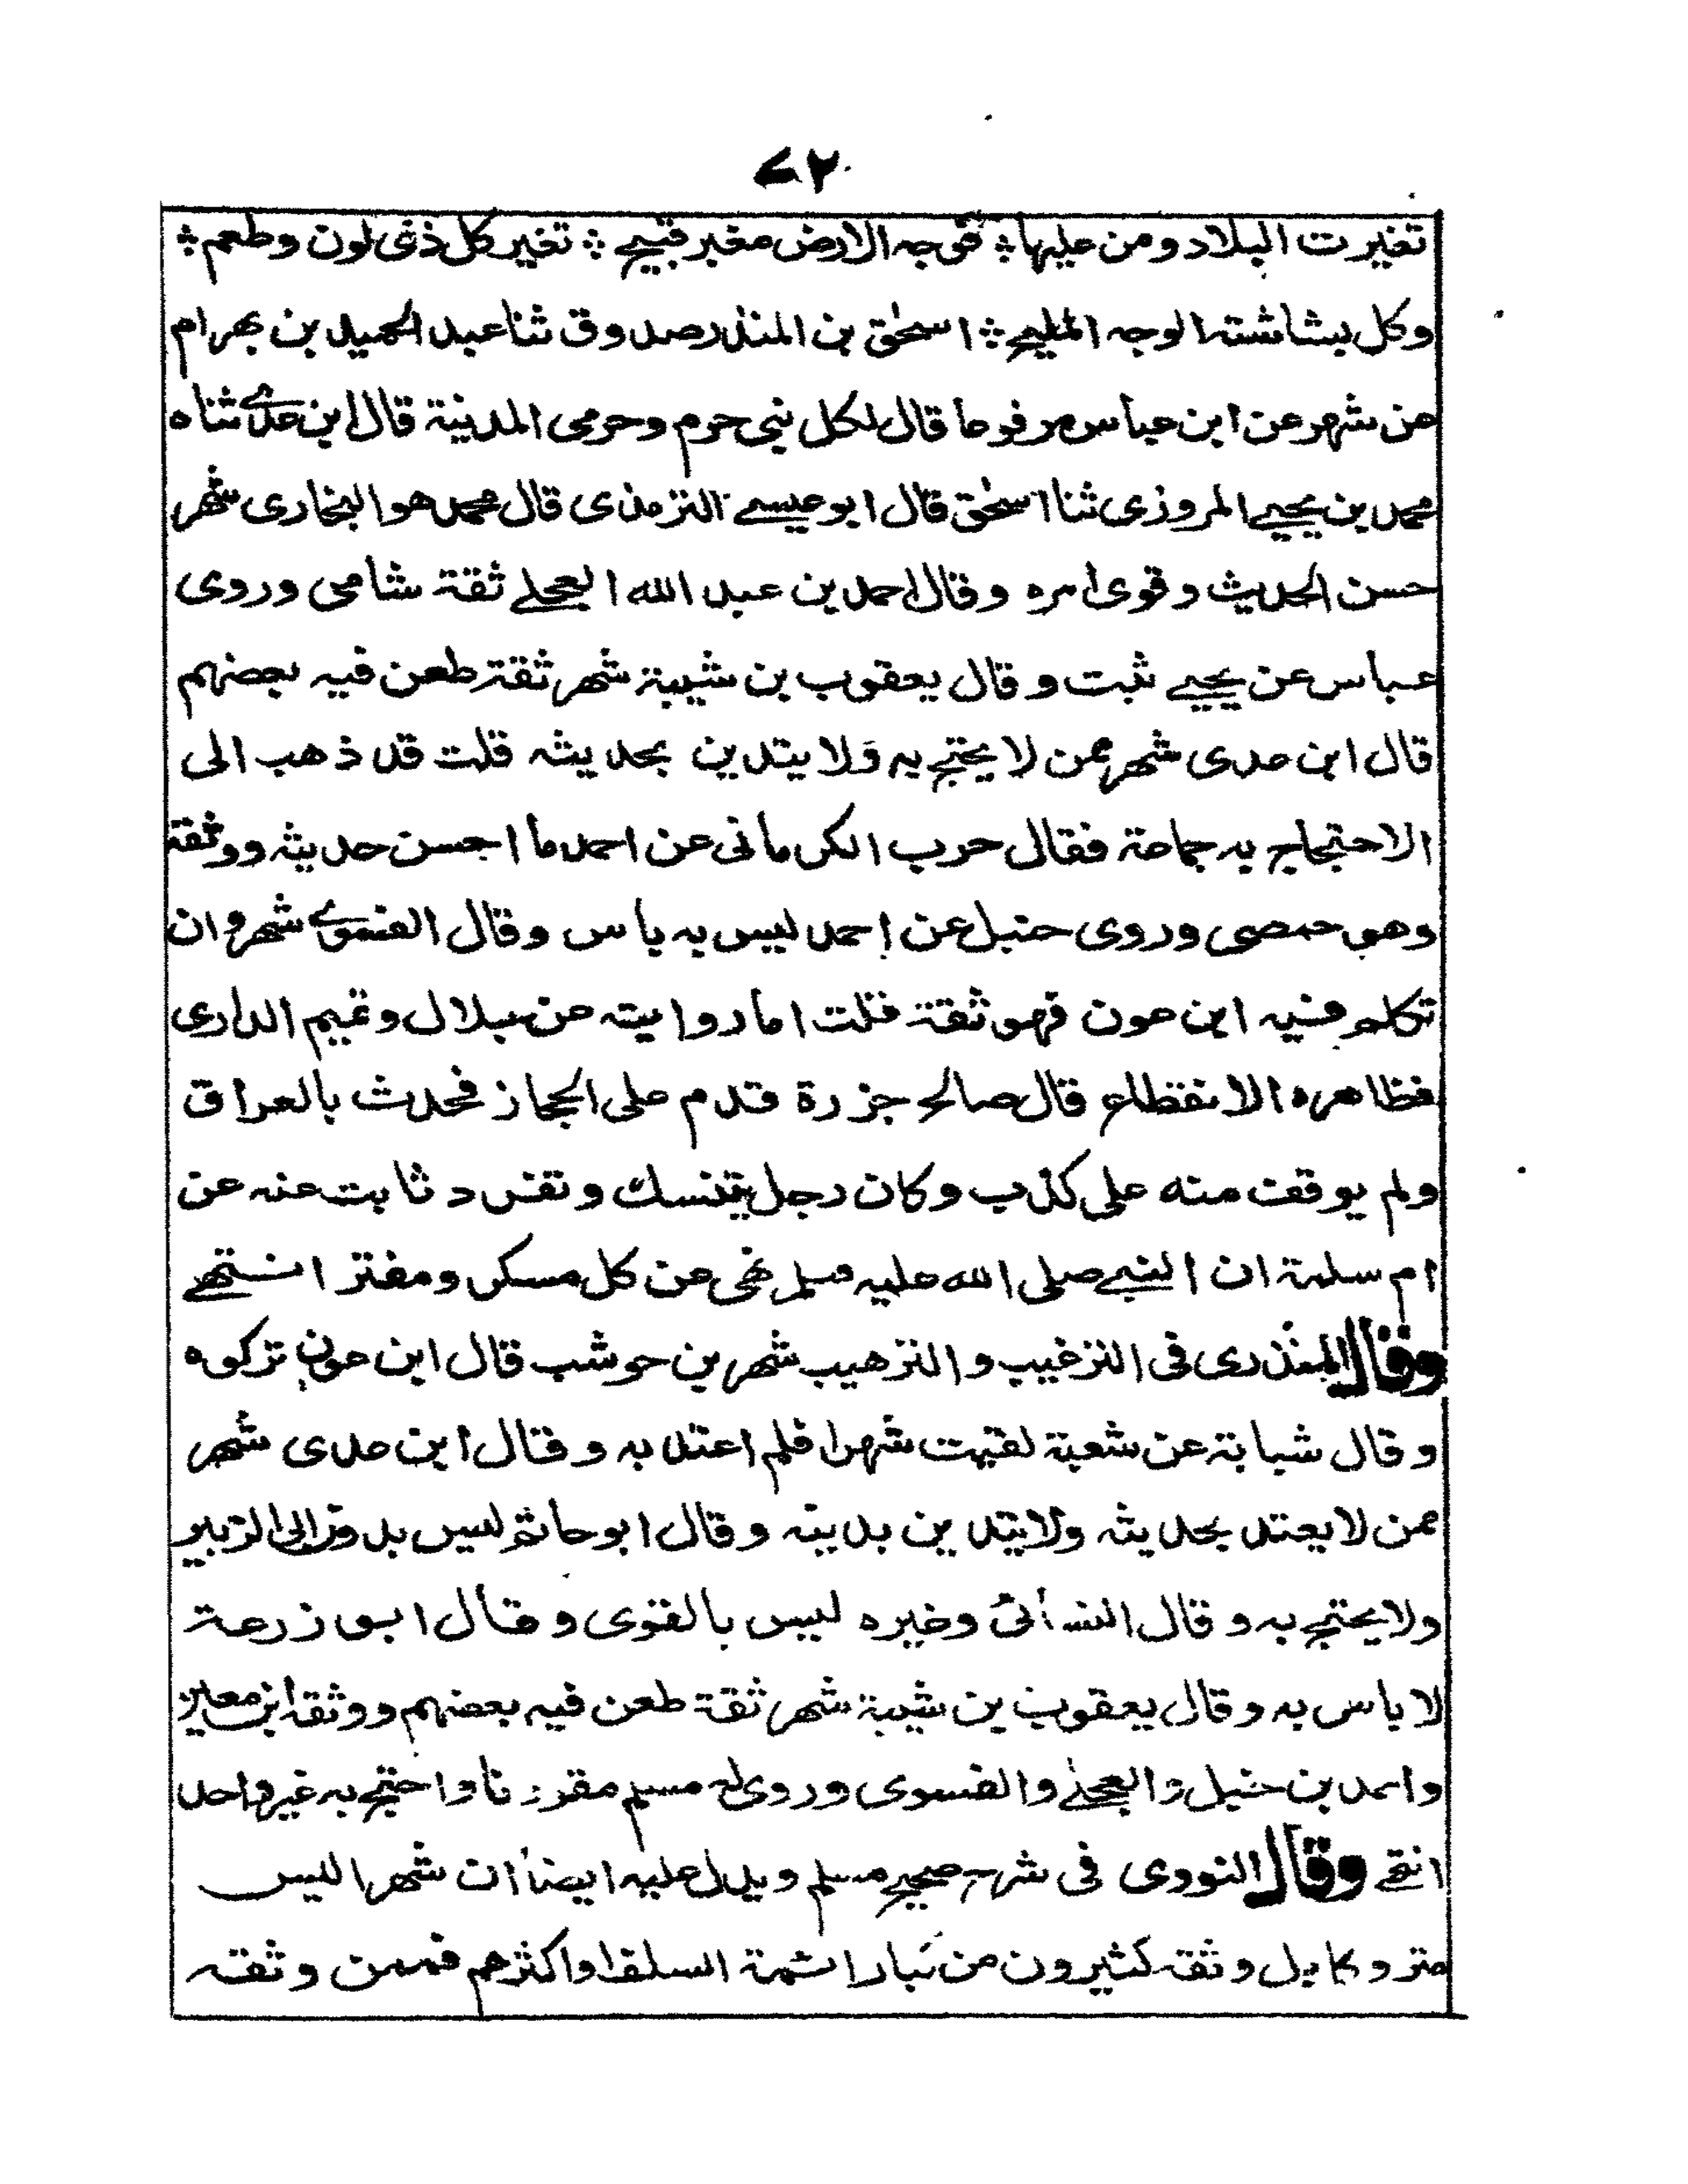 ٧٢
تغيرت البلاد ومن عليها ؞ فوجه الارض مغبر قبيح ؞ تغير كل ذى لون وطعم ؞
وكل بشاشته الوجه المليح ؞ اسحٰق بن المنذر صدوق ثنا عبد الحميد بن بهرام
عن شهر عن ابن عباس مرفوعا قال لكل نبى حرم وحرمى المدينة قال ابن عدے ثناه
محمد بن يحيے المروزى ثنا اسحٰق قال ابو عيسے الترمذى قال محمد هو البخارى شهر
حسن الحديث وقوى امره وقال احمد بن عبد الله العجلے ثقة شامى وروى
عباس عن يحيے ثبت وقال يعقوب بن شيبة شهر ثقة طعن فيه بعضهم
قال ابن عدى شهر ممن لا يحتج به ولا يتدين بحديثه قلت قد ذهب الى
الاحتجاج به جماعة فقال حرب الكرمانى عن احمد ما احسن حديثه ووثقه
وهو حمصى وروى حنبل عن احمد ليس به باس وقال الفسوے شهر وان
تكلم فيه ابن عون فهو ثقة قلت اما روايته عن بلال وتميم الدارى
فظاهره الانقطاع قال صالح جزرة قدم على الحجاز فحدث بالعراق
ولم يوقف منه على كذب وكان رجل يتنسك وتفرد ثابت عنه عن
ام سلمة ان النبے صلى الله عليه وسلم نهى عن كل مسكر ومفتر انتهے
وقال المنذرى فى الترغيب والترهيب شهر بن حوشب قال ابن عون تركوه
وقال شبابة عن شعبة لقيت شهرا فلم اعتد به وقال ابن عدى شهر
ممن لا يعتد بحديثه ولا يتدين بدينه وقال ابو حاتم ليس بدون ابى الزبير
ولا يحتج به وقال النسائى وغيره ليس بالقوى وقال ابو زرعة
لا باس به وقال يعقوب بن شيبة شهر ثقة طعن فيه بعضهم ووثقه ابن معين
واحمد بن حنبل والعجلے والفسوى وروى له مسلم مقرونا واحتج به غير واحد
انتهے وقال النووى فى شرح صحيح مسلم ويدل عليه ايضا ان شهرا ليس
متروكا بل وثقه كثيرون من كبار ائمة السلف او اكثرهم فممن وثقه